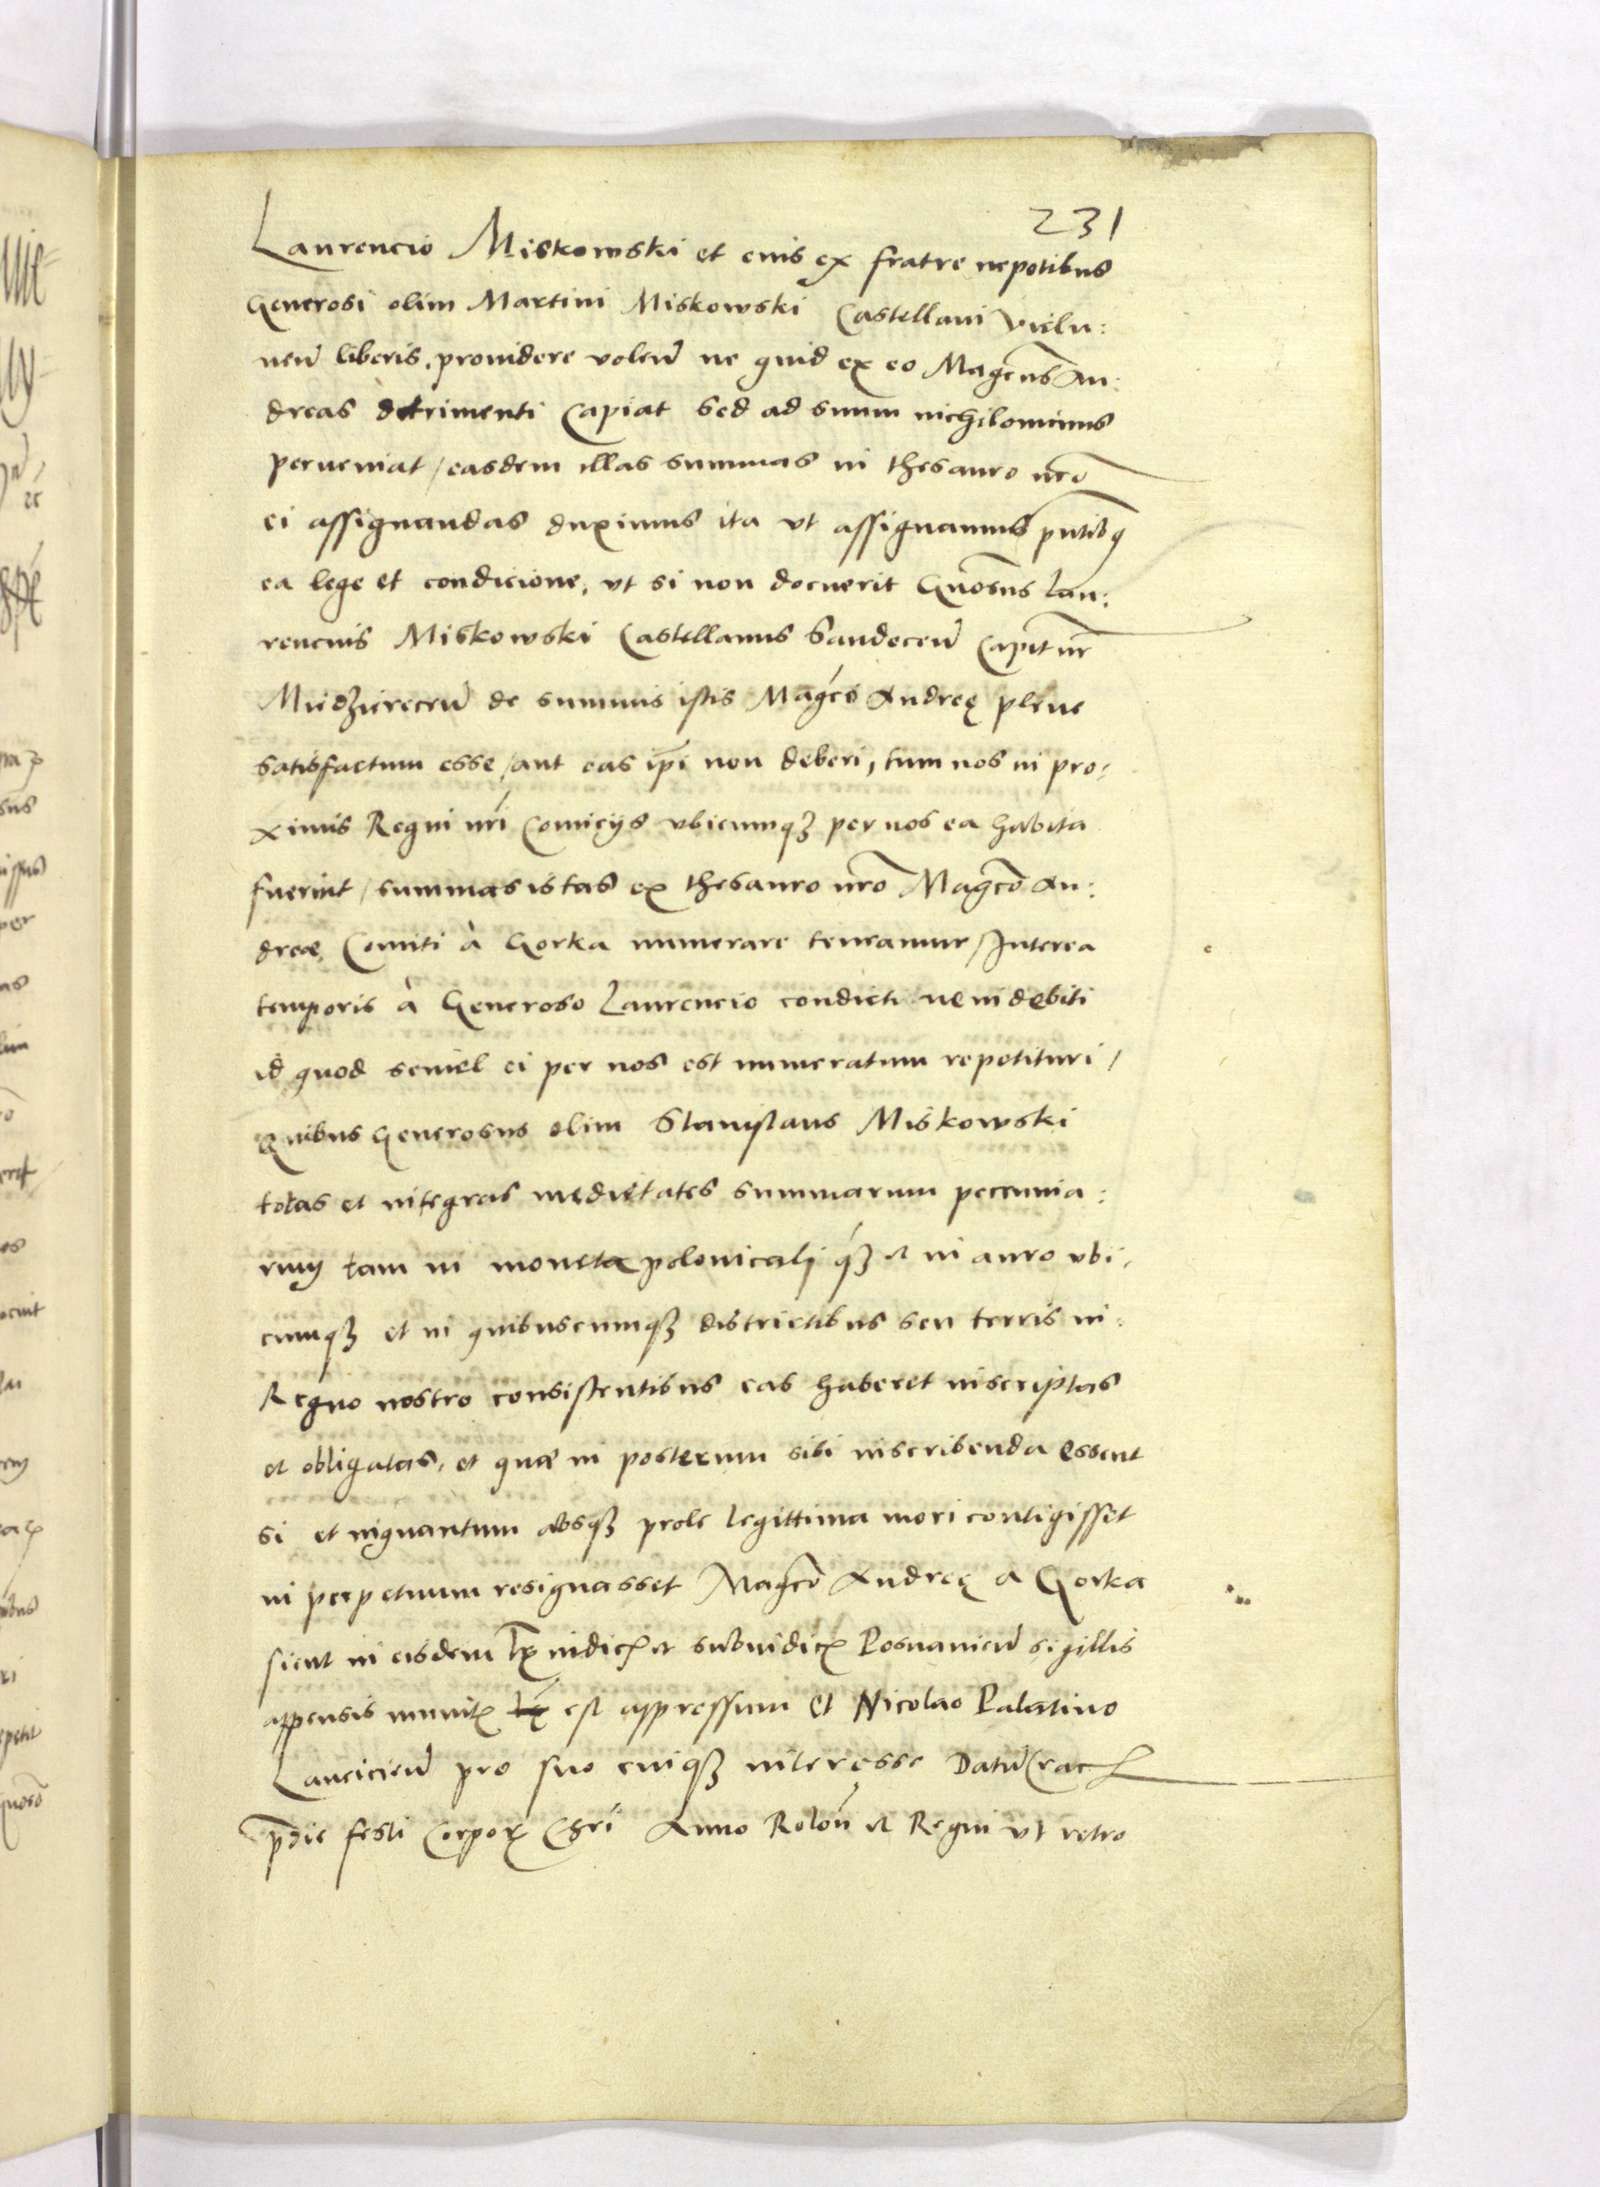 231
Laurencio Miskowski et eius ex fratre nepotibus
Generosi olim Martini Miskowski Castellani Vielu:
nen̄ liberis, prouidere volen̄ ne quid ex eo Magcus An:
dreas detrimenti capiat sed ad suum nichilominus
perueniat / easdem illas summas in thesauro nr̄o
ei assignandas duximus ita vt assignamus pn̄tibq
ea lege et condicione, vt si non docuerit Gn̄osus Lau:
rencius Miskowski Castellanus Sandecen̄ Capit nr̄
Miedzirecen̄ de summis istis Magco Andreę plene
satisfactum esse / aut eas ip̄i non deberi, tum nos in pro:
ximis Regni nr̄i Comicijs vbicumqȝ per nos ea habita
fuerint / summas istas ex thesauro nr̄o Magco An:
dreæ Comiti à Gorka numerare teneamur / Interea
temporis à Generoso Laurencio condicti ue indebiti
id quod semel ei per nos est numeratum repetituri /
Quibus Generosus olim Stanislaus Miskowski
totas et integras medietates summarum peccunia:
rum tam in moneta polonicali qȝ et in auro vbi:
cumqȝ et in quibuscumqȝ districtibus seu terris in:
Regno nostro consistentibus eas haberet inscriptas
et obligatas, et quæ in posterum sibi inscribenda essent
si et inquantum absqȝ prole legittima mori contigisset
in perpetuum resignasset Magco Andreę a Gorka
sicut in eisdem lr̄is iudicis et subiudicis Posnanien̄ sigillis
appensis munitis est expressum et Nicolao Palatino
Lancicien̄ pro suo cuiqȝ interesse Datum Crac
pridie festi Corporis Chr̄i Anno Relon̄ et Regni vt retro